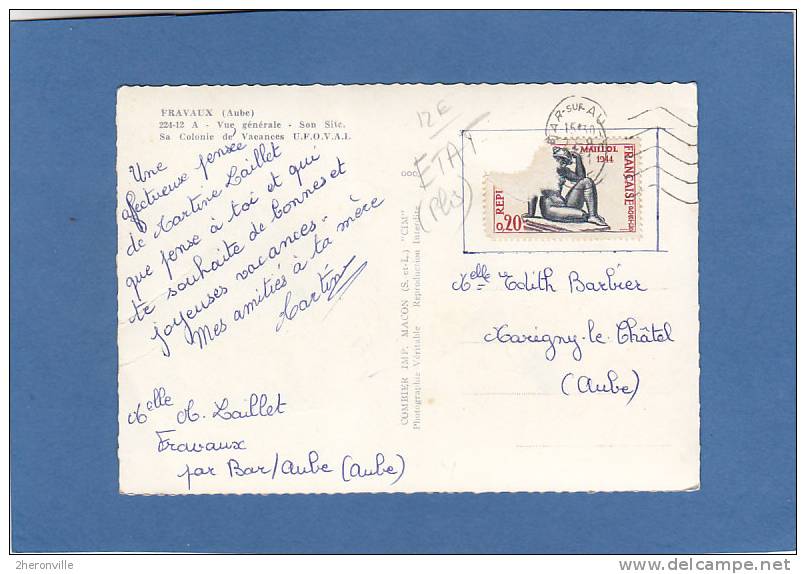 FRAVAUX (Aube)
224-12 A - Vue générale - Son Site.
Sa Colonie de Vacances U.F.O.V.A.L
Une
affectueuse pensée
de Martine Laillet
que pense à toi et qui
te souhaite de bonnes et
joyeuses vacances.
Mes amitiés à ta mère
Martine
Melle M. Laillet
Fravaux
par Bar/Aube (Aube)
COMBIER IMP. MACON (S.-et-L.) "CIM"
Photographie Véritable Reproduction Interdite
12 E
ETAT
(Plis)
BAR-SUR-AU
15H30
MAILLOL
1944
FRANÇAISE
POSTES
REPI
0,20
Melle Edith Barbier
Marigny-le-Châtel
(Aube)
2heronville
delcampe.net